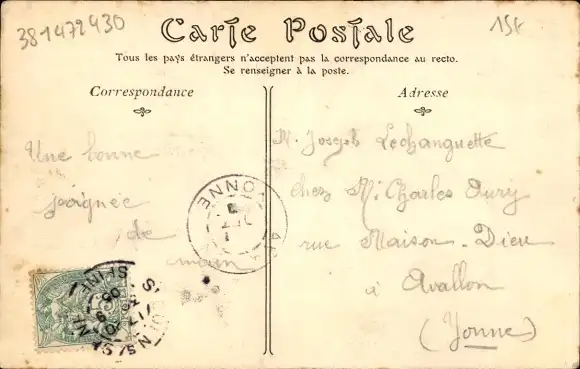 381472430
15f
Carte Postale
Tous les pays étrangers n'acceptent pas la correspondance au recto.
Se renseigner à la poste.
Correspondance
Adresse
Une bonne
poignée
de
main
M. Joseph Lechanguette
chez M. Charles Aury
rue Maison-Dieu
à Avallon
(Yonne)
YONNE
SEINE